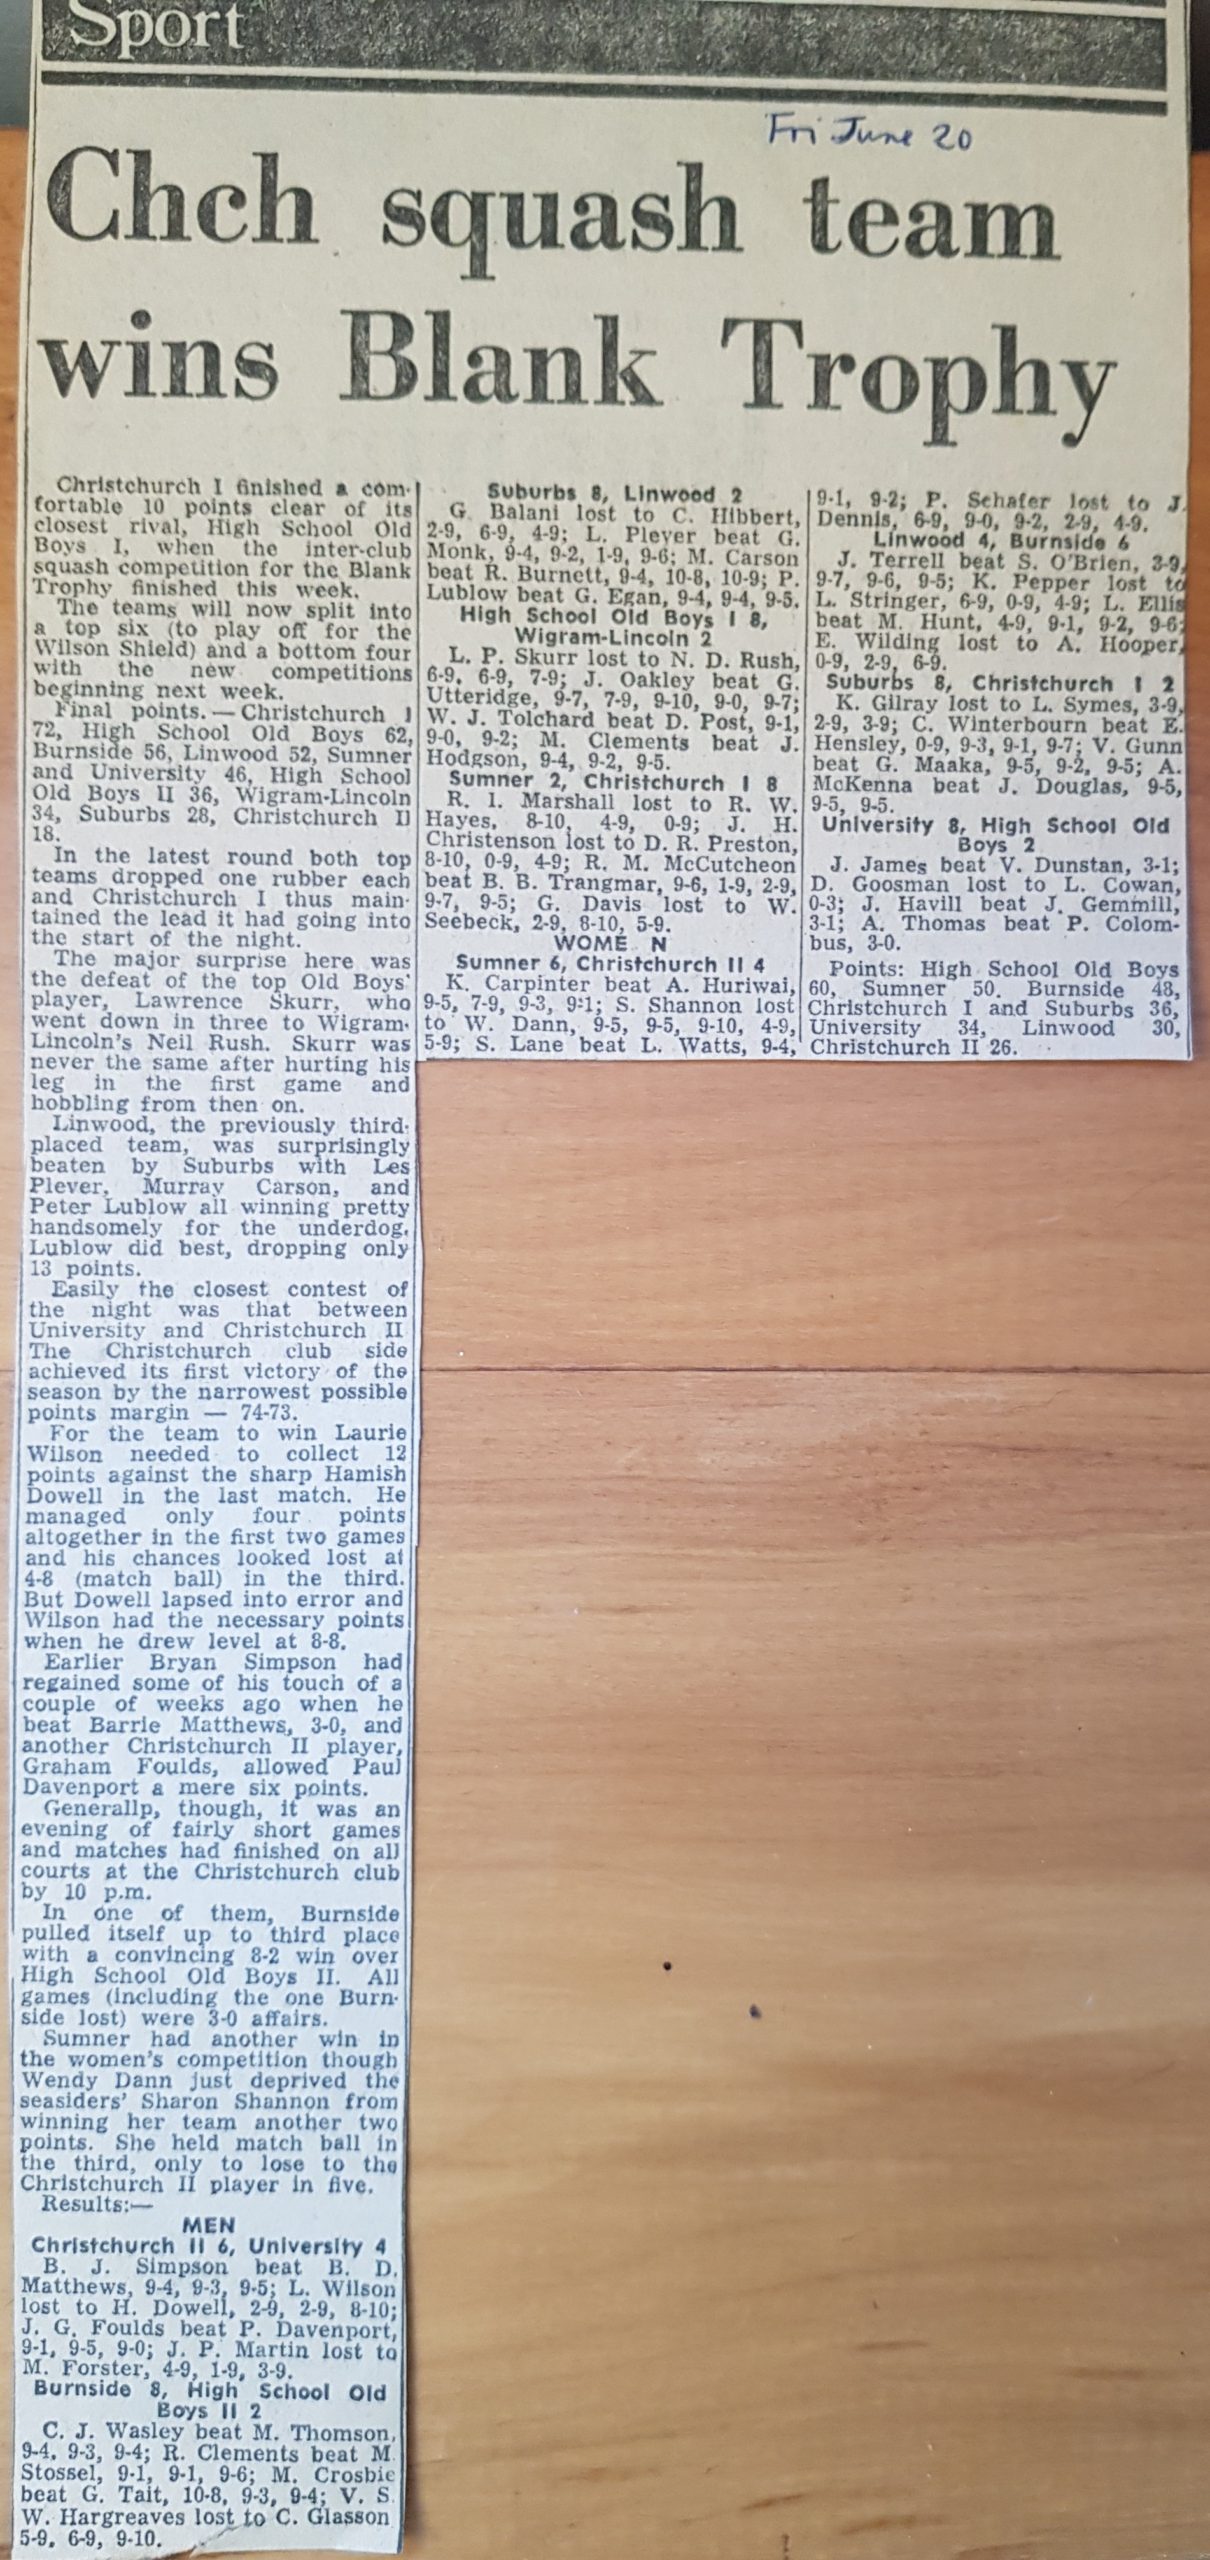 Sport
Fri June 20
Chch squash team
wins Blank Trophy
Christchurch I finished a com-
fortable 10 points clear of its
closest rival, High School Old
Boys I, when the inter-club
squash competition for the Blank
Trophy finished this week.
The teams will now split into
a top six (to play off for the
Wilson Shield) and a bottom four
with the new competitions
beginning next week.
Final points. — Christchurch I
72, High School Old Boys 62,
Burnside 56, Linwood 52, Sumner
and University 46, High School
Old Boys II 36, Wigram-Lincoln
34, Suburbs 28, Christchurch II
18.
In the latest round both top
teams dropped one rubber each
and Christchurch I thus main-
tained the lead it had going into
the start of the night.
The major surprise here was
the defeat of the top Old Boys'
player, Lawrence Skurr, who
went down in three to Wigram-
Lincoln's Neil Rush. Skurr was
never the same after hurting his
leg in the first game and
hobbling from then on.
Linwood, the previously third-
placed team, was surprisingly
beaten by Suburbs with Les
Plever, Murray Carson, and
Peter Lublow all winning pretty
handsomely for the underdog.
Lublow did best, dropping only
13 points.
Easily the closest contest of
the night was that between
University and Christchurch II
The Christchurch club side
achieved its first victory of the
season by the narrowest possible
points margin — 74-73.
For the team to win Laurie
Wilson needed to collect 12
points against the sharp Hamish
Dowell in the last match. He
managed only four points
altogether in the first two games
and his chances looked lost at
4-8 (match ball) in the third.
But Dowell lapsed into error and
Wilson had the necessary points
when he drew level at 8-8.
Earlier Bryan Simpson had
regained some of his touch of a
couple of weeks ago when he
beat Barrie Matthews, 3-0, and
another Christchurch II player,
Graham Foulds, allowed Paul
Davenport a mere six points.
Generallp, though, it was an
evening of fairly short games
and matches had finished on all
courts at the Christchurch club
by 10 p.m.
In one of them, Burnside
pulled itself up to third place
with a convincing 8-2 win over
High School Old Boys II. All
games (including the one Burn-
side lost) were 3-0 affairs.
Sumner had another win in
the women's competition though
Wendy Dann just deprived the
seasiders' Sharon Shannon from
winning her team another two
points. She held match ball in
the third, only to lose to the
Christchurch II player in five.
Results:—
MEN
Christchurch II 6, University 4
B. J. Simpson beat B. D.
Matthews, 9-4, 9-3, 9-5; L. Wilson
lost to H. Dowell, 2-9, 2-9, 8-10;
J. G. Foulds beat P. Davenport,
9-1, 9-5, 9-0; J. P. Martin lost to
M. Forster, 4-9, 1-9, 3-9.
Burnside 8, High School Old
Boys II 2
C. J. Wasley beat M. Thomson,
9-4, 9-3, 9-4; R. Clements beat M.
Stossel, 9-1, 9-1, 9-6; M. Crosbie
beat G. Tait, 10-8, 9-3, 9-4; V. S.
W. Hargreaves lost to C. Glasson
5-9, 6-9, 9-10.
Suburbs 8, Linwood 2
G. Balani lost to C. Hibbert,
2-9, 6-9, 4-9; L. Plever beat G.
Monk, 9-4, 9-2, 1-9, 9-6; M. Carson
beat R. Burnett, 9-4, 10-8, 10-9; P.
Lublow beat G. Egan, 9-4, 9-4, 9-5.
High School Old Boys I 8,
Wigram-Lincoln 2
L. P. Skurr lost to N. D. Rush,
6-9, 6-9, 7-9; J. Oakley beat G.
Utteridge, 9-7, 7-9, 9-10, 9-0, 9-7;
W. J. Tolchard beat D. Post, 9-1,
9-0, 9-2; M. Clements beat J.
Hodgson, 9-4, 9-2, 9-5.
Sumner 2, Christchurch I 8
R. I. Marshall lost to R. W.
Hayes, 8-10, 4-9, 0-9; J. H.
Christenson lost to D. R. Preston,
8-10, 0-9, 4-9; R. M. McCutcheon
beat B. B. Trangmar, 9-6, 1-9, 2-9,
9-7, 9-5; G. Davis lost to W.
Seebeck, 2-9, 8-10, 5-9.
WOME N
Sumner 6, Christchurch II 4
K. Carpinter beat A. Huriwai,
9-5, 7-9, 9-3, 9-1; S. Shannon lost
to W. Dann, 9-5, 9-5, 9-10, 4-9,
5-9; S. Lane beat L. Watts, 9-4,
9-1, 9-2; P. Schafer lost to J.
Dennis, 6-9, 9-0, 9-2, 2-9, 4-9.
Linwood 4, Burnside 6
J. Terrell beat S. O'Brien, 3-9,
9-7, 9-6, 9-5; K. Pepper lost to
L. Stringer, 6-9, 0-9, 4-9; L. Ellis
beat M. Hunt, 4-9, 9-1, 9-2, 9-6;
E. Wilding lost to A. Hooper,
0-9, 2-9, 6-9.
Suburbs 8, Christchurch I 2
K. Gilray lost to L. Symes, 3-9,
2-9, 3-9; C. Winterbourn beat E.
Hensley, 0-9, 9-3, 9-1, 9-7; V. Gunn
beat G. Maaka, 9-5, 9-2, 9-5; A.
McKenna beat J. Douglas, 9-5,
9-5, 9-5.
University 8, High School Old
Boys 2
J. James beat V. Dunstan, 3-1;
D. Goosman lost to L. Cowan,
0-3; J. Havill beat J. Gemmill,
3-1; A. Thomas beat P. Colom-
bus, 3-0.
Points: High School Old Boys
60, Sumner 50, Burnside 48,
Christchurch I and Suburbs 36,
University 34, Linwood 30,
Christchurch II 26.